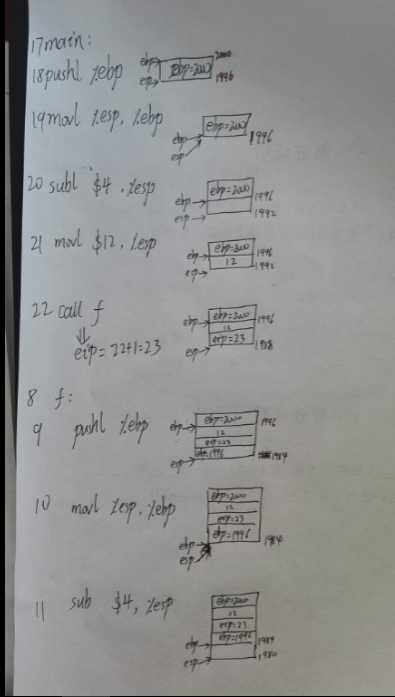 17 main:
18 pushl %ebp
ebp
esp
ebp=2000
2000
1996
19 movl %esp, %ebp
ebp=2000
ebp
esp
1996
20 subl $4, %esp
ebp=2000
ebp
esp
1996
1992
21 movl $12, %esp
ebp=2000
12
ebp
esp
1996
1992
22 call f
⇓
eip=22+1=23
ebp=2000
12
eip=23
ebp
esp
1996
1988
8 f:
9 pushl %ebp
ebp=2000
12
eip=23
ebp=1996
ebp
esp
1996
1984
10 movl %esp, %ebp
ebp=2000
12
eip=23
ebp=1996
ebp
esp
1984
11 sub $4, %esp
ebp=2000
12
eip=23
ebp=1996
ebp
esp
1984
1980